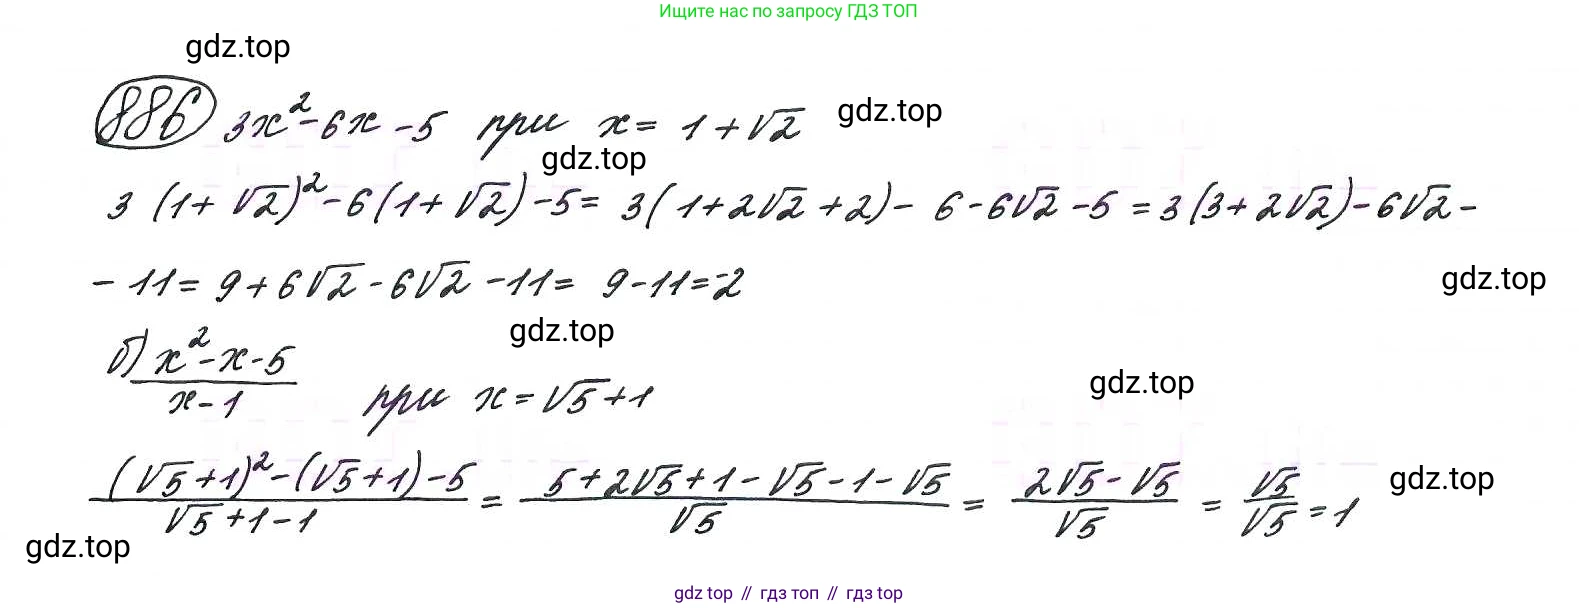 Ищите нас по запросу ГДЗ ТОП
gdz.top
886 3x² - 6x - 5 при x = 1 + √2 gdz.top
gdz.top
3 (1 + √2)² - 6 (1 + √2) - 5 = 3 (1 + 2√2 + 2) - 6 - 6√2 - 5 = 3 (3 + 2√2) - 6√2 -
- 11 = 9 + 6√2 - 6√2 - 11 = 9 - 11 = -2 gdz.top
gdz.top
б) (x² - x - 5)/(x - 1) при x = √5 + 1 gdz.top
((√5 + 1)² - (√5 + 1) - 5)/(√5 + 1 - 1) = (5 + 2√5 + 1 - √5 - 1 - √5)/√5 = (2√5 - √5)/√5 = √5/√5 = 1 gdz.top
gdz.top
gdz top // гдз топ // gdz top